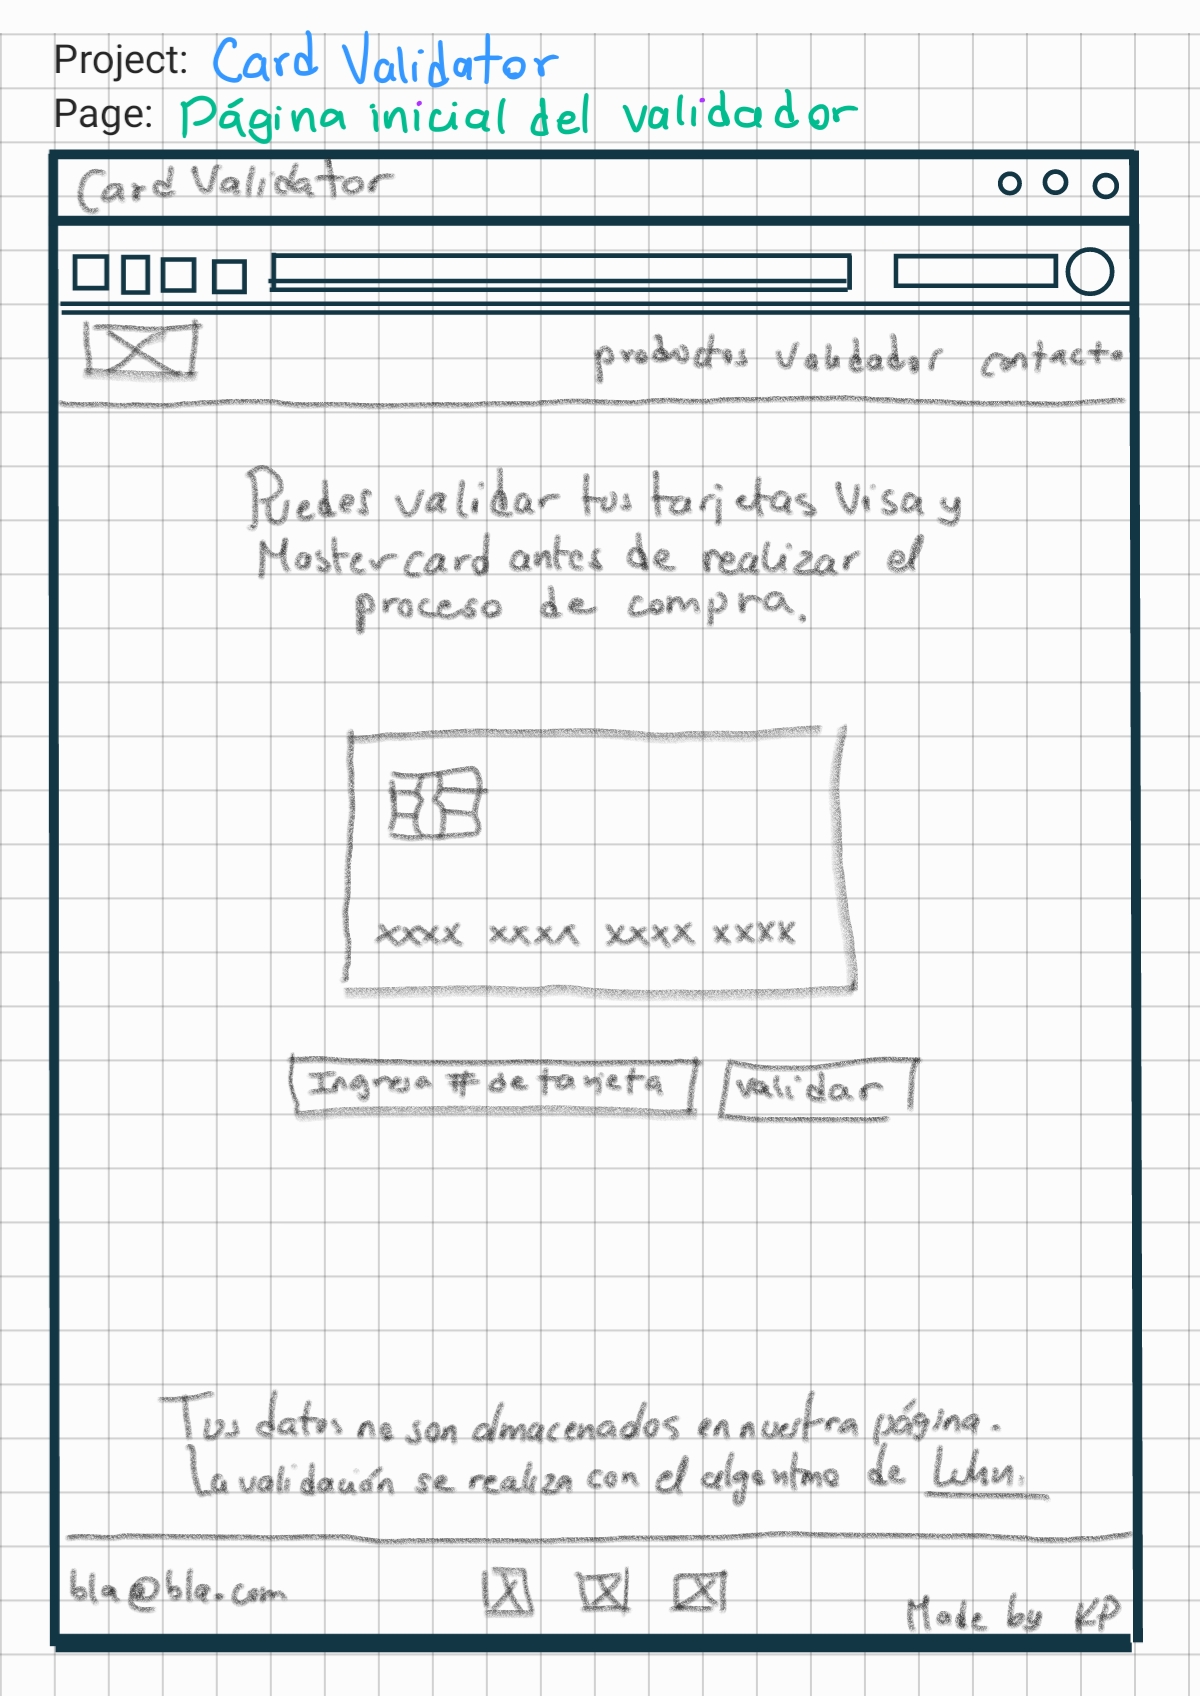 Project: Card Validator
Page: Página inicial del validador
Card Validator
productos validador contacto
Puedes validar tus tarjetas Visa y
Mastercard antes de realizar el
proceso de compra.
xxxx xxxx xxxx xxxx
Ingresa # de tarjeta
validar
Tus datos no son almacenados en nuestra página.
La validación se realiza con el algoritmo de Luhn.
bla@bla.com
Made by KP